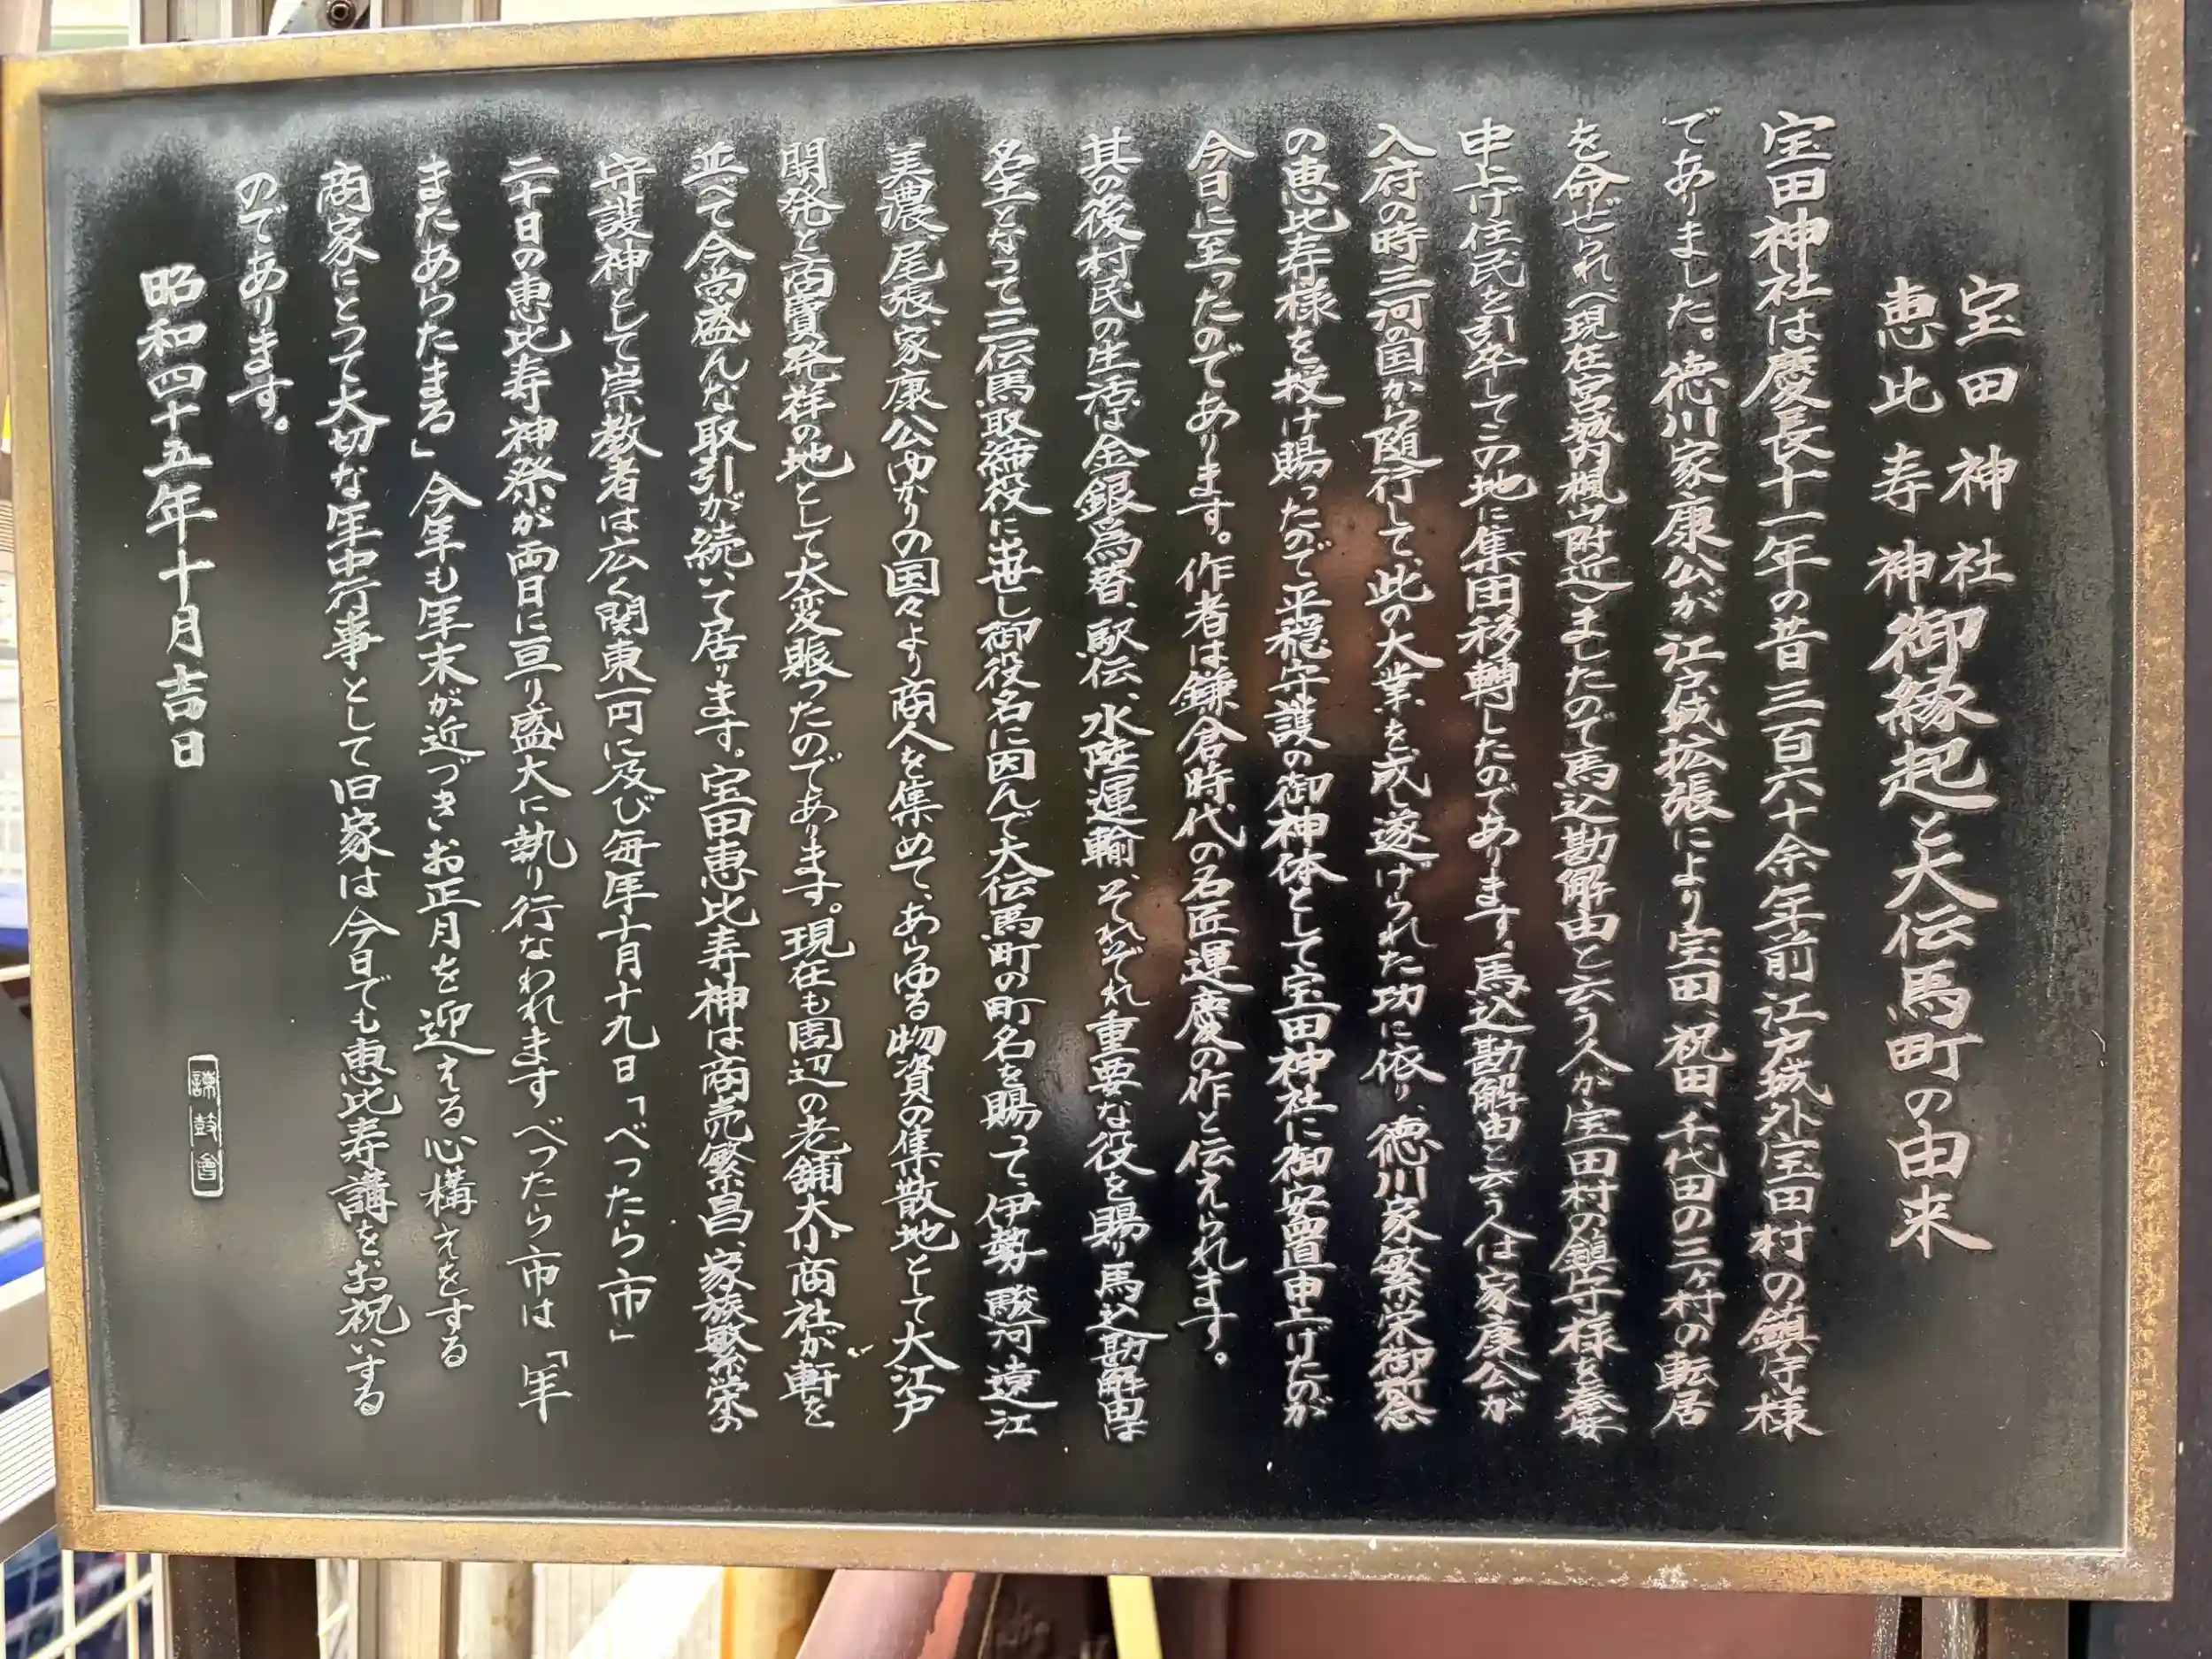 宝田神社
恵比寿神御縁起と大伝馬町の由来
宝田神社は慶長十一年の昔三百六十余年前江戸城外宝田村の鎮守様
でありました。徳川家康公が江戸城拡張により宝田、祝田、千代田の三ヶ村の転居
を命ぜられ(現在宮城内楓山附近)ましたので馬込勘解由と云う人が宝田村の鎮守様を奉安
申上げ住民を引卒してこの地に集団移轉したのであります。馬込勘解由と云う人は家康公が
入府の時三河の国から随行して、此の大業を成し遂げられた功に依り、徳川家繁栄御祈念
の恵比寿様を授け賜ったので平穏守護の御神体として宝田神社に御安置申上げたのが
今日に至ったのであります。作者は鎌倉時代の名匠運慶の作と伝えられます。
其の後村民の生活は金銀為替、駅伝、水陸運輸、それぞれ重要な役を賜り馬込勘解由は
名主となって三伝馬取締役に出世し御役名に因んで大伝馬町の町名を賜って、伊勢、駿河、遠江
美濃、尾張、家康公ゆかりの国々より商人を集めて、あらゆる物資の集散地として大江戸
開発と商賣発祥の地として大変賑ったのであります。現在も周辺の老舗大小商社が軒を
並べて今尚盛んな取引が続いて居ります。宝田恵比寿神は商売繁昌、家族繁栄の
守護神として崇敬者は広く関東一円に及び毎年十月十九日「べったら市」
二十日の恵比寿神祭が両日に亘り盛大に執り行なわれますべったら市は「年
またあらたまる」今年も年末が近づきお正月を迎える心構えをする
商家にとって大切な年中行事として旧家は今日でも恵比寿講をお祝いする
のであります。
昭和四十五年十月吉日
諫鼓會